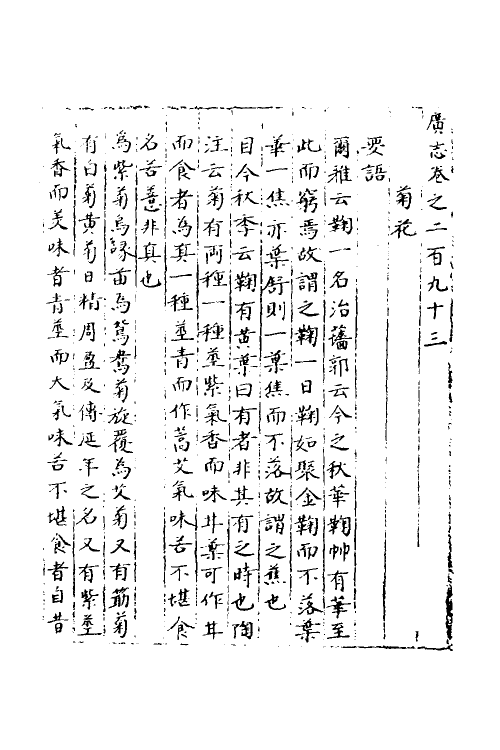 廣志卷之二百九十三
菊花
要語
爾雅云鞠一名治蘠郭云今之秋華鞠帥有華至
此而窮焉故謂之鞠一曰鞠如聚金鞠而不落葉
華一焦亦葉舒則一葉焦而不落故謂之蕉也
目今秋季云鞠有黄葉曰有者非其有之時也陶
注云菊有兩種一種莖紫氣香而味甘葉可作羙
而食者為真一種莖青而作蒿艾氣味苦不堪食
名苦薏非真也
為紫菊馬緑苗為鴛鴦菊旋覆為艾菊又有筋菊
有白菊黄菊日精周盈及傅延年之名又有紫莖
氣香而美味者青莖而大氣味苦不堪食者自昔